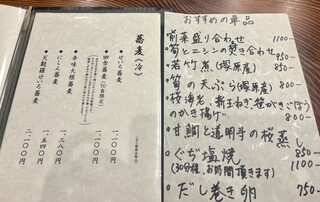 おすすめの単品
前菜盛り合わせ 1100-
筍とニシンの焚き合わせ 950-
若竹煮(塚原産) 850-
筍の天ぷら(塚原産) 800-
桜海老、新玉ねぎ、笹がきごぼう
のかき揚げ 800-
甘鯛と道明寺の桜蒸し 850
ぐぢ塩焼 1100-
(30分程、お時間頂きます)
だし巻き卵 750-
蕎麦(冷)
せいろ蕎麦 一、一〇〇
田舎蕎麦(10食限定) 一、一〇〇
辛味大根蕎麦 一、三八〇
にしん蕎麦 一、五四〇
天麩羅せいろ蕎麦 二、一〇〇